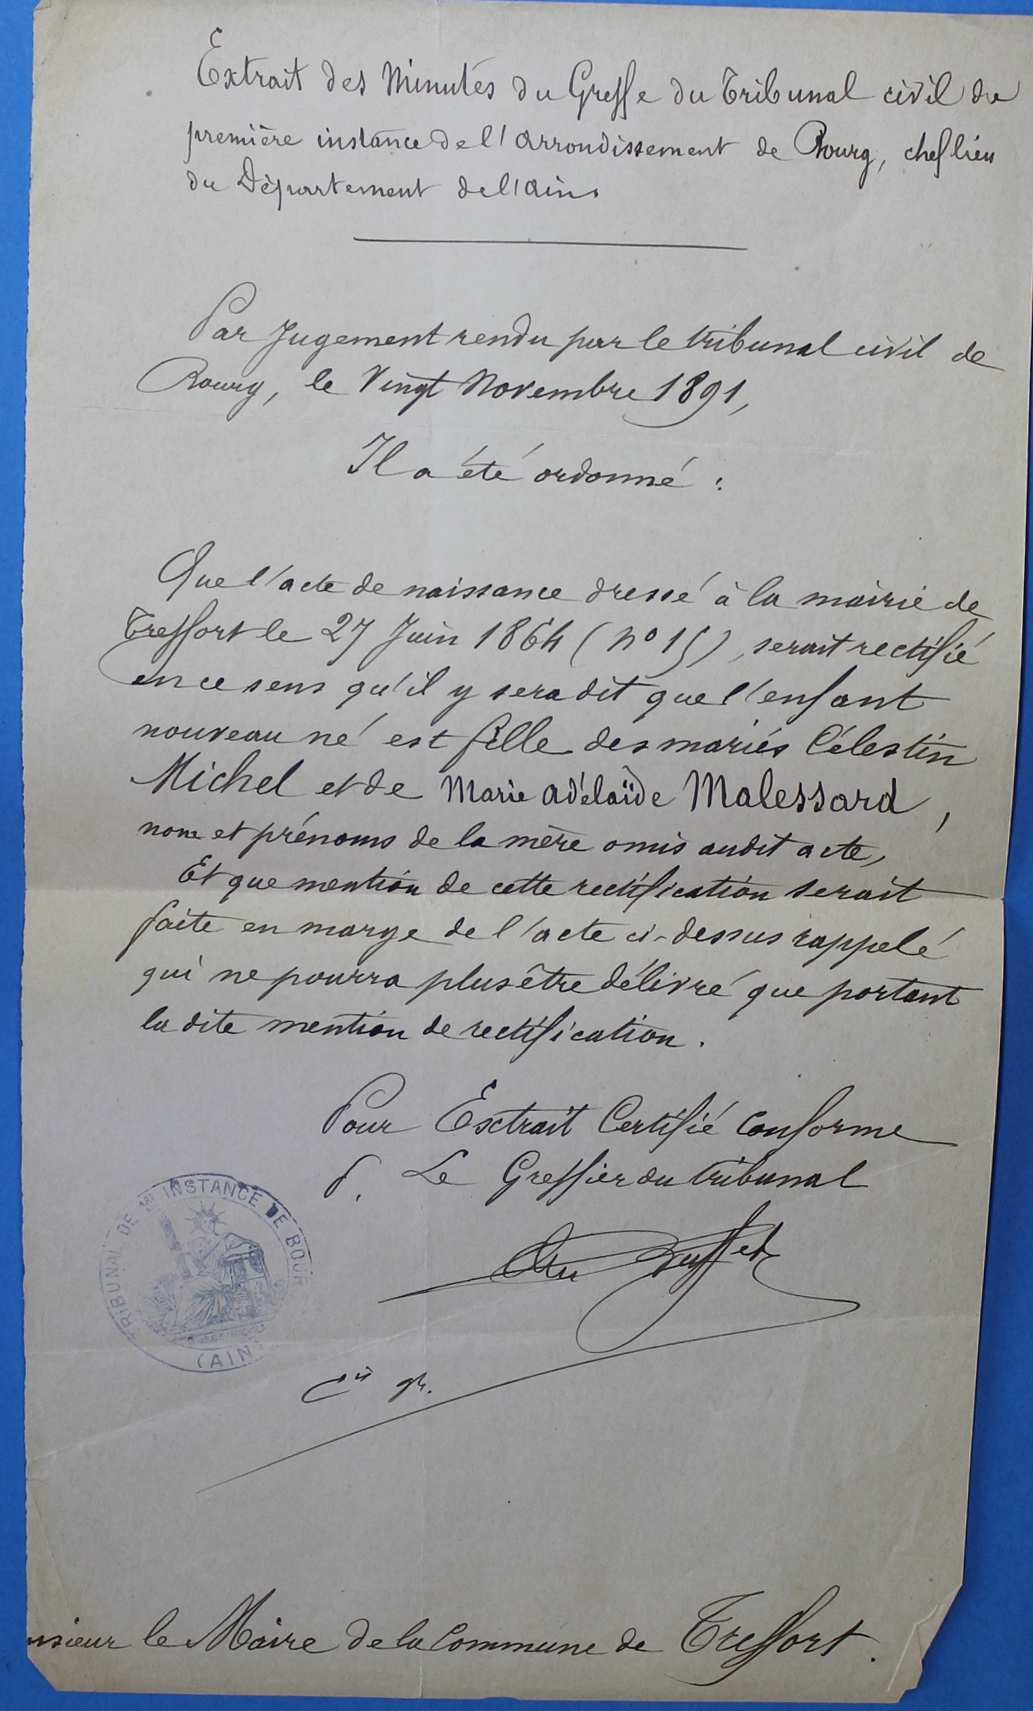 Extrait des Minutes du Greffe du Tribunal civil de
première instance de l'arrondissement de Bourg, chef lieu
du Département de l'Ain.
Par Jugement rendu par le tribunal civil de
Bourg, le Vingt Novembre 1891,
Il a été ordonné :
Que l'acte de naissance dressé à la mairie de
Treffort le 27 Juin 1864 (No 15), serait rectifié
en ce sens qu'il y sera dit que l'enfant
nouveau né est fille des mariés Célestin
Michel et de Marie Adélaïde Malessard,
nom et prénoms de la mère omis audit acte,
Et que mention de cette rectification serait
faite en marge de l'acte ci-dessus rappelé
qui ne pourra plus être délivré que portant
la dite mention de rectification.
Pour Extrait Certifié Conforme
P. Le Greffier du tribunal
TRIBUNAL DE 1ère INSTANCE DE BOUR
(AIN
nsieur le Maire de la Commune de Treffort.